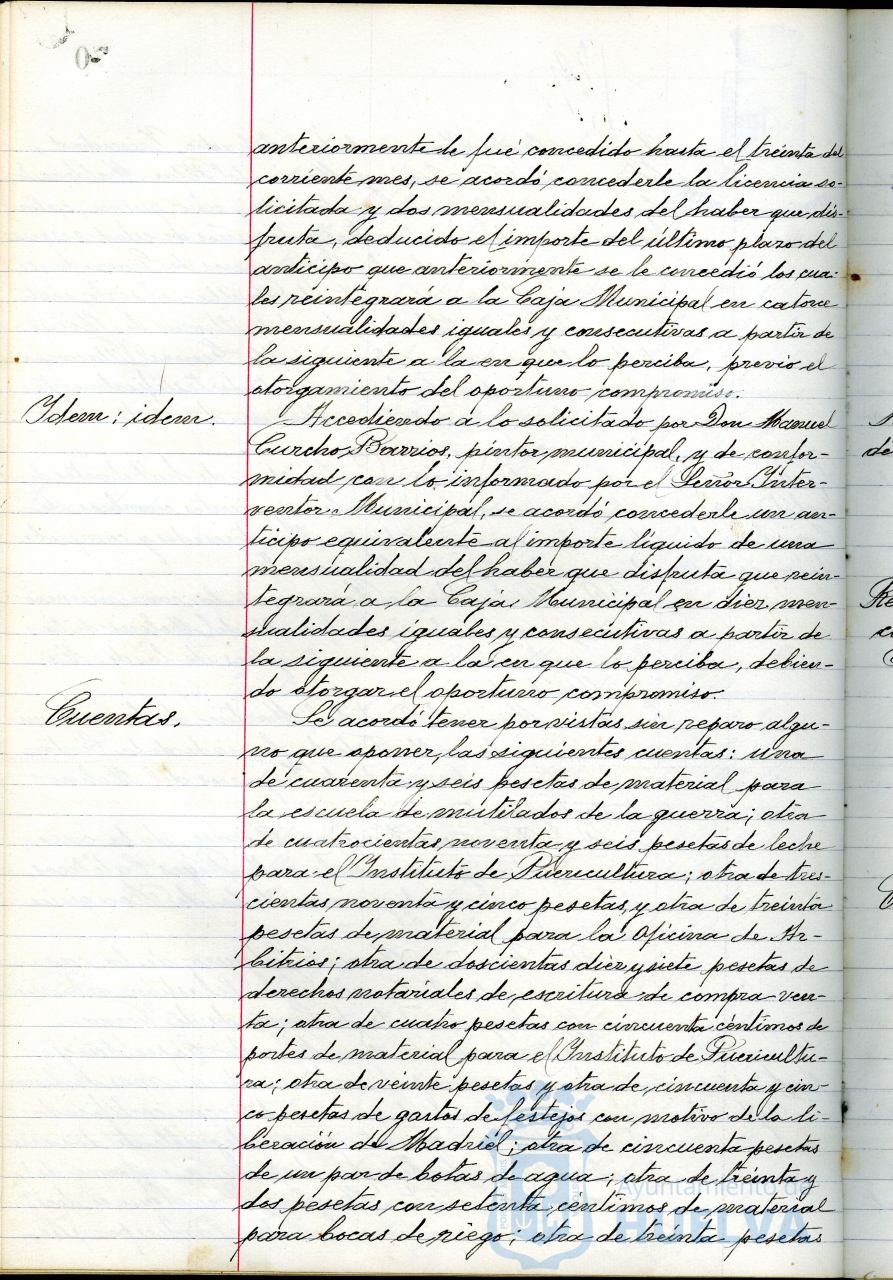 anteriormente le fué concedido hasta el treinta del
corriente mes, se acordó concederle la licencia so-
licitada y dos mensualidades del haber que dis-
fruta, deducido el importe del último plazo del
anticipo que anteriormente se le concedió los cua-
les reintegrará a la Caja Municipal en catorce
mensualidades iguales y consecutivas a partir de
la siguiente a la en que lo perciba, previo el
otorgamiento del oportuno compromiso.
Idem: idem.
Accediendo a lo solicitado por Don Manuel
Curcho Barrios, pintor municipal, y de confor-
midad con lo informado por el Señor Inter-
ventor Municipal, se acordó concederle un an-
ticipo equivalente al importe líquido de una
mensualidad del haber que disfruta que rein-
tegrará a la Caja Municipal en diez men-
sualidades iguales y consecutivas a partir de
la siguiente a la en que lo perciba, debien-
do otorgar el oportuno compromiso.
Cuentas.
Se acordó tener por vistas sin reparo algu-
no que oponer, las siguientes cuentas: una
de cuarenta y seis pesetas de material para
la escuela de mutilados de la guerra; otra
de cuatrocientas noventa y seis pesetas de leche
para el Instituto de Puericultura; otra de tres-
cientas noventa y cinco pesetas, y otra de treinta
pesetas de material para la Oficina de Ar-
bitrios; otra de doscientas diez y siete pesetas de
derechos notariales de escritura de compra ven-
ta; otra de cuatro pesetas con cincuenta céntimos de
portes de material para el Instituto de Puericultu-
ra; otra de veinte pesetas y otra de cincuenta y cin-
co pesetas de gastos de festejos con motivo de la li-
beración de Madrid; otra de cincuenta pesetas
de un par de botas de agua; otra de treinta y
dos pesetas con setenta céntimos de material
para bocas de riego; otra de treinta pesetas
Ayuntamiento de
HUELVA